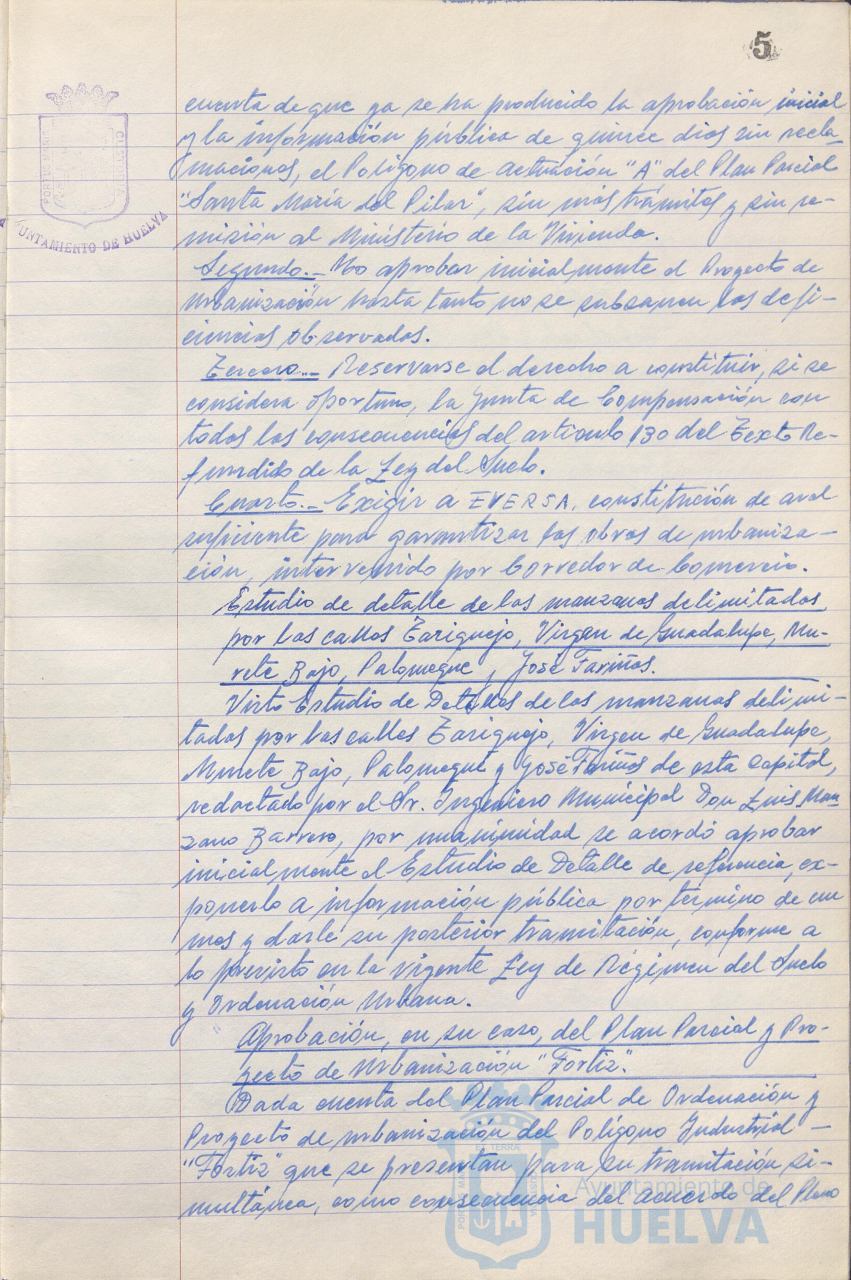 5
cuenta de que ya se ha producido la aprobación inicial
y la información pública de quince dias sin recla-
maciones, el Polígono de actuación "A" del Plan Parcial
"Santa María del Pilar", sin más trámites y sin re-
misión al Ministerio de la Vivienda.
AYUNTAMIENTO DE HUELVA
Segundo.- No aprobar inicialmente el Proyecto de
urbanización hasta tanto no se subsanen las defi-
ciencias observadas.
Tercero.- Reservarse el derecho a constituir, si se
considera oportuno, la Junta de Compensación con
todas las consecuencias del artículo 130 del Texto Re-
fundido de la Ley del Suelo.
Cuarto.- Exigir a EVERSA, constitución de aval
suficiente para garantizar las obras de urbaniza-
ción, intervenido por Corredor de Comercio.
Estudio de detalle de las manzanas delimitadas
por las calles Zariquejo, Virgen de Guadalupe, Mu-
rete Bajo, Palomeque, José Fariñas.
Visto Estudio de Detalles de las manzanas delimi-
tadas por las calles Zariquejo, Virgen de Guadalupe,
Murete Bajo, Palomeque y José Fariñas de esta Capital,
redactado por el Sr. Ingeniero Municipal Don Luis Man-
zano Barrero, por unanimidad se acordó aprobar
inicialmente el Estudio de Detalle de referencia, ex-
ponerlo a información pública por término de un
mes y darle su posterior tramitación, conforme a
lo previsto en la vigente Ley de Régimen del Suelo
y Ordenación Urbana.
Aprobación, en su caso, del Plan Parcial y Pro-
yecto de Urbanización "Fortiz".
Dada cuenta del Plan Parcial de Ordenación y
Proyecto de urbanización del Polígono Industrial —
"Fortiz" que se presentan para su tramitación si-
multánea, como consecuencia del acuerdo del Pleno
Ayuntamiento de
HUELVA